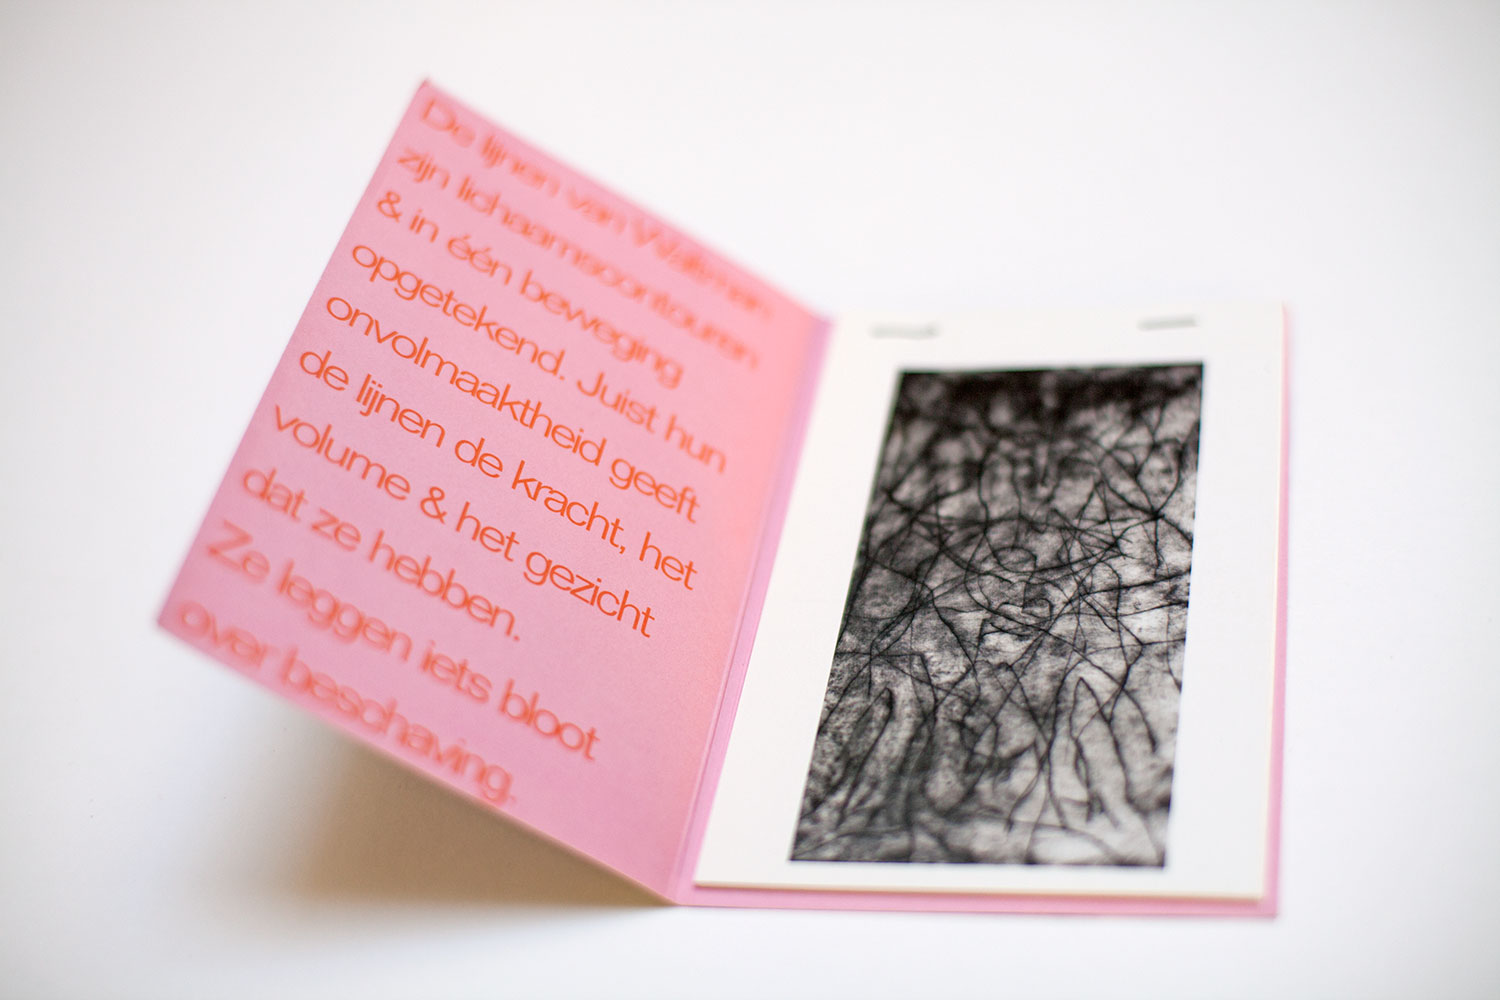 De lijnen van
zijn lichaamscontouren
& in één beweging
opgetekend. Juist hun
onvolmaaktheid geeft
de lijnen de kracht, het
volume & het gezicht
dat ze hebben.
Ze leggen iets bloot
over beschaving.